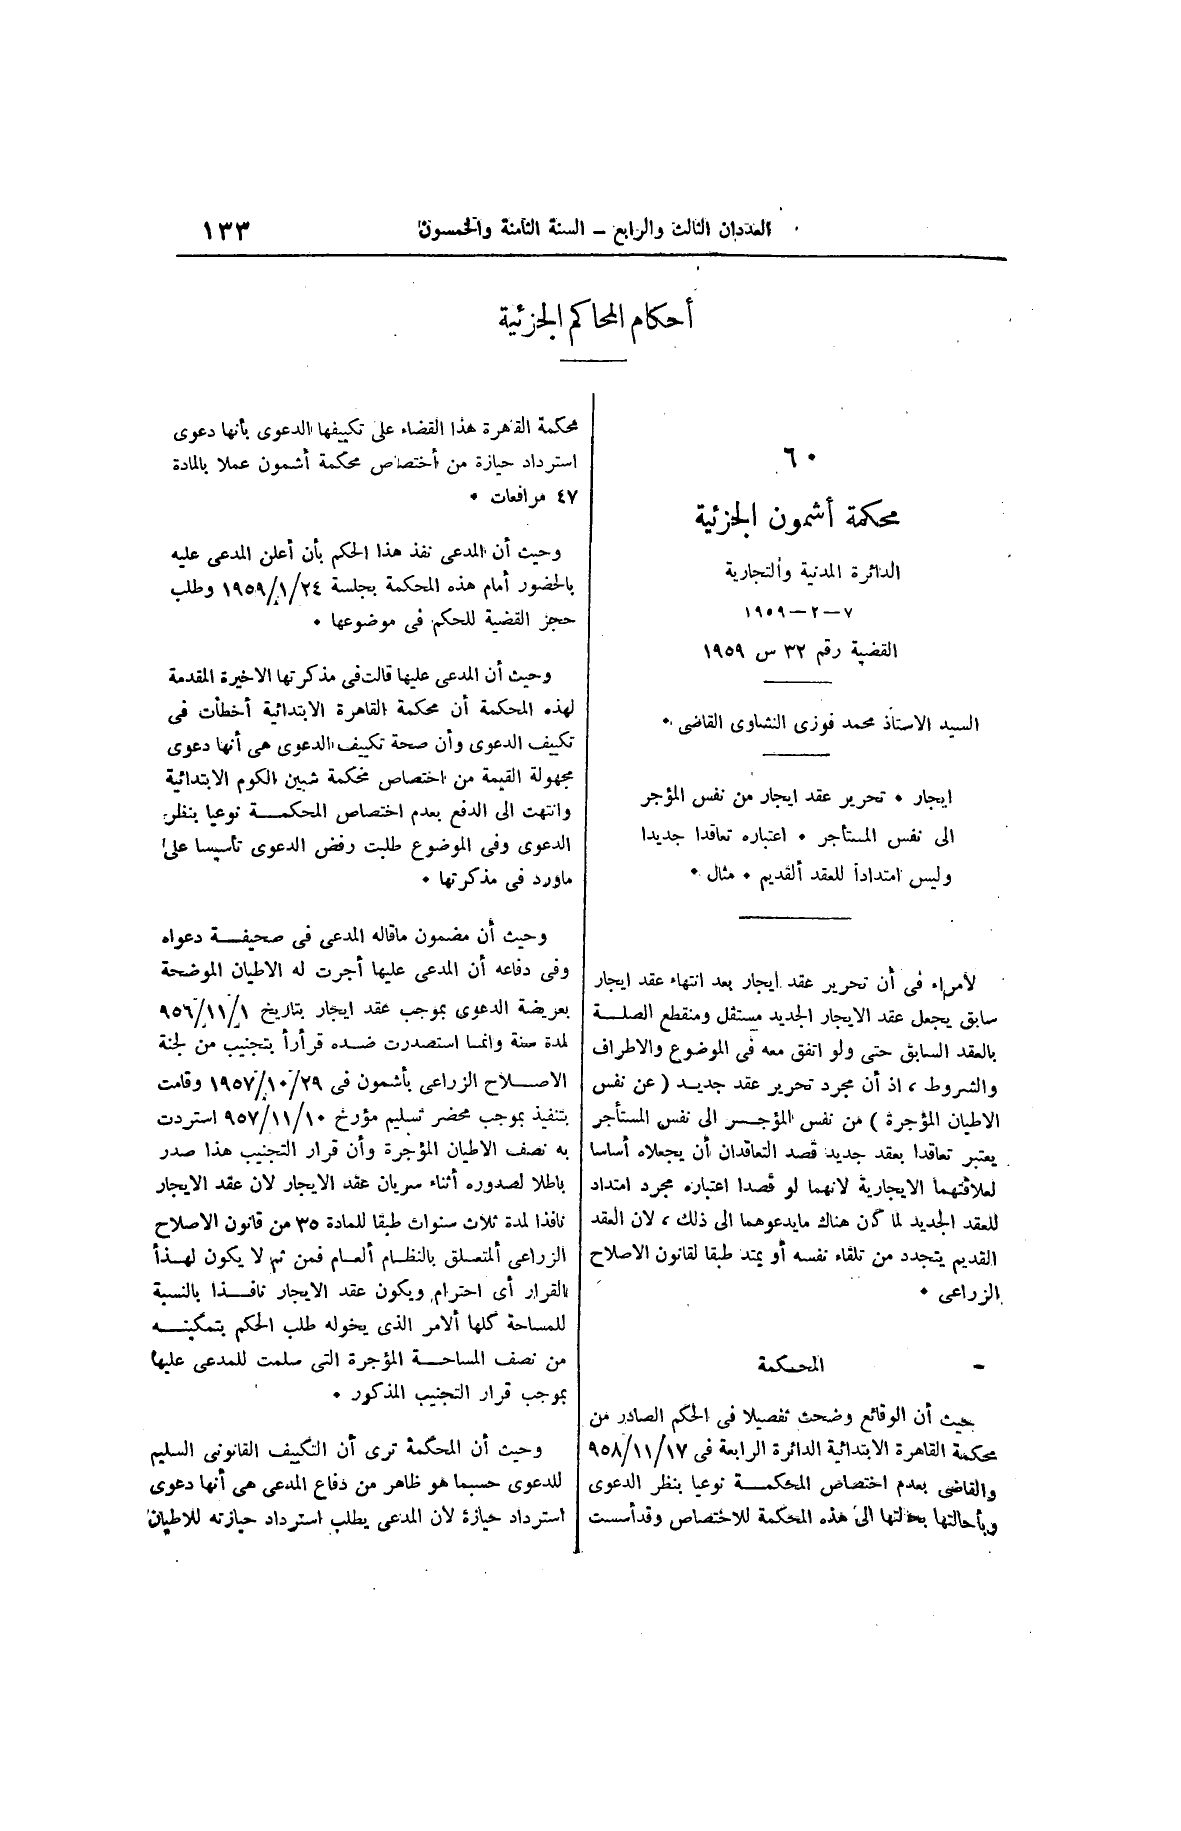 العددان الثالث والرابع – السنة الثامنة والخمسون
١٣٣
أحكام المحاكم الجزئية
٦٠
محكمة أشمون الجزئية
الدائرة المدنية والتجارية
٧ – ٢ – ١٩٥٩
القضية رقم ٣٢ س ١٩٥٩
السيد الاستاذ محمد فوزى النشاوى القاضى ٠
ايجار ٠ تحرير عقد ايجار من نفس المؤجر
الى نفس المستأجر ٠ اعتباره تعاقدا جديدا
وليس امتداداً للعقد القديم ٠ مثال ٠
لامراء فى أن تحرير عقد ايجار بعد انتهاء عقد ايجار
سابق يجعل عقد الايجار الجديد مستقل ومنقطع الصلة
بالعقد السابق حتى ولو اتفق معه فى الموضوع والاطراف
والشروط ، اذ أن مجرد تحرير عقد جديد ( عن نفس
الاطيان المؤجرة ) من نفس المؤجر الى نفس المستأجر
يعتبر تعاقدا بعقد جديد قصد التعاقدان أن يجعلاه أساسا
لعلاقتهما الايجارية لانهما لو قصدا اعتباره مجرد امتداد
للعقد الجديد لما كان هناك مايدعوهما الى ذلك ، لان العقد
القديم يتجدد من تلقاء نفسه أو يمتد طبقا لقانون الاصلاح
الزراعى ٠
المحكمة
حيث أن الوقائع وضحت تفصيلا فى الحكم الصادر من
محكمة القاهرة الابتدائية الدائرة الرابعة فى ٩٥٨/١١/١٧
والقاضى بعدم اختصاص المحكمة نوعيا بنظر الدعوى
وبأحالتها بحالتها الى هذه المحكمة للاختصاص وقدأسست
محكمة القاهرة هذا القضاء على تكييفها الدعوى بأنها دعوى
استرداد حيازة من أختصاص محكمة أشمون عملا بالمادة
٤٧ مرافعات ٠
وحيث أن المدعى نفذ هذا الحكم بأن أعلن المدعى عليه
بالحضور أمام هذه المحكمة بجلسة ١٩٥٩/١/٢٤ وطلب
حجز القضية للحكم فى موضوعها ٠
وحيث أن المدعى عليها قالت فى مذكرتها الاخيرة المقدمة
لهذه المحكمة أن محكمة القاهرة الابتدائية أخطأت فى
تكييف الدعوى وأن صحة تكييف الدعوى هى أنها دعوى
مجهولة القيمة من اختصاص محكمة شبين الكوم الابتدائية
وانتهت الى الدفع بعدم اختصاص المحكمة نوعيا بنظر
الدعوى وفى الموضوع طلبت رفض الدعوى تأسيسا على
ماورد فى مذكرتها ٠
وحيث أن مضمون ماقاله المدعى فى صحيفة دعواه
وفى دفاعه أن المدعى عليها أجرت له الاطيان الموضحة
بعريضة الدعوى بموجب عقد ايجار بتاريخ ٩٥٦/١١/١
لمدة سنة وانما استصدرت ضده قراراً بتجنيب من لجنة
الاصلاح الزراعى بأشمون فى ١٩٥٧/١٠/٢٩ وقامت
بتنفيذ بموجب محضر تسليم مؤرخ ٩٥٧/١١/١٠ استردت
به نصف الاطيان المؤجرة وأن قرار التجنيب هذا صدر
باطلا لصدوره أثناء سريان عقد الايجار لان عقد الايجار
نافذا لمدة ثلاث سنوات طبقا للمادة ٣٥ من قانون الاصلاح
الزراعى ألمتعلق بالنظام ألعام فمن ثم لا يكون لهذأ
القرار أى احترام ويكون عقد الايجار نافذا بالنسبة
للمساحة كلها ألامر الذى يخوله طلب الحكم بتمكينه
من نصف المساحة المؤجرة التى سلمت للمدعى عليها
بموجب قرار التجنيب المذكور ٠
وحيث أن المحكمة ترى أن التكييف القانونى السليم
للدعوى حسبما هو ظاهر من دفاع المدعى هى أنها دعوى
استرداد حيازة لان المدعى يطلب استرداد حيازته للاطيان